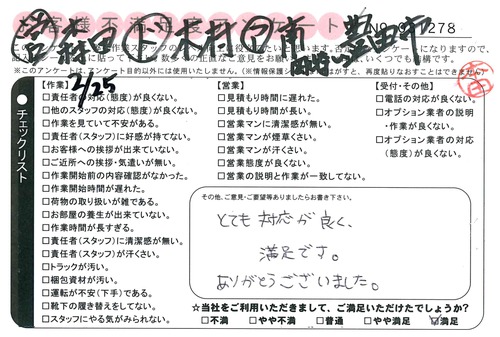 お客様不満足度アンケート
No. 0 1278
㊂ 森田 ト 木村 ㋐ 南 豊田市
※このアンケートは、アンケート目的以外には使用いたしません。(※情報保護シールは、はがすと、再度貼りなおすことはできません)
2/25
チェックリスト
【作業】
□責任者の対応(態度)が良くない。
□他のスタッフの対応(態度)が良くない。
□作業を見ていて不安がある。
□責任者(スタッフ)に好感が持てない。
□お客様への挨拶が出来ていない。
□ご近所への挨拶・気遣いが無い。
□作業開始前の内容確認がなかった。
□作業開始時間が遅れた。
□荷物の取り扱いが雑である。
□お部屋の養生が出来ていない。
□作業時間が長すぎる。
□責任者(スタッフ)に清潔感が無い。
□責任者(スタッフ)が汗くさい。
□トラックが汚い。
□梱包資材が汚い。
□運転が不安(下手)である。
□靴下の履き替えをしてない。
□スタッフにやる気がみられない。
【営業】
□見積もり時間に遅れた。
□見積もり時間が長い。
□営業マンに清潔感が無い。
□営業マンが煙草くさい。
□営業マンが汗くさい。
□営業態度が良くない。
□営業の説明と作業が一致してない。
【受付・その他】
□電話の対応が良くない。
□オプション業者の説明・作業が良くない。
□オプション業者の対応(態度)が良くない。
その他、ご意見・ご要望等ありましたらお書き下さい。
とても対応が良く、
満足です。
ありがとうございました。
☆当社をご利用いただきまして、ご満足いただけたでしょうか?
□不満 □やや不満 □普通 □やや満足 ☑満足